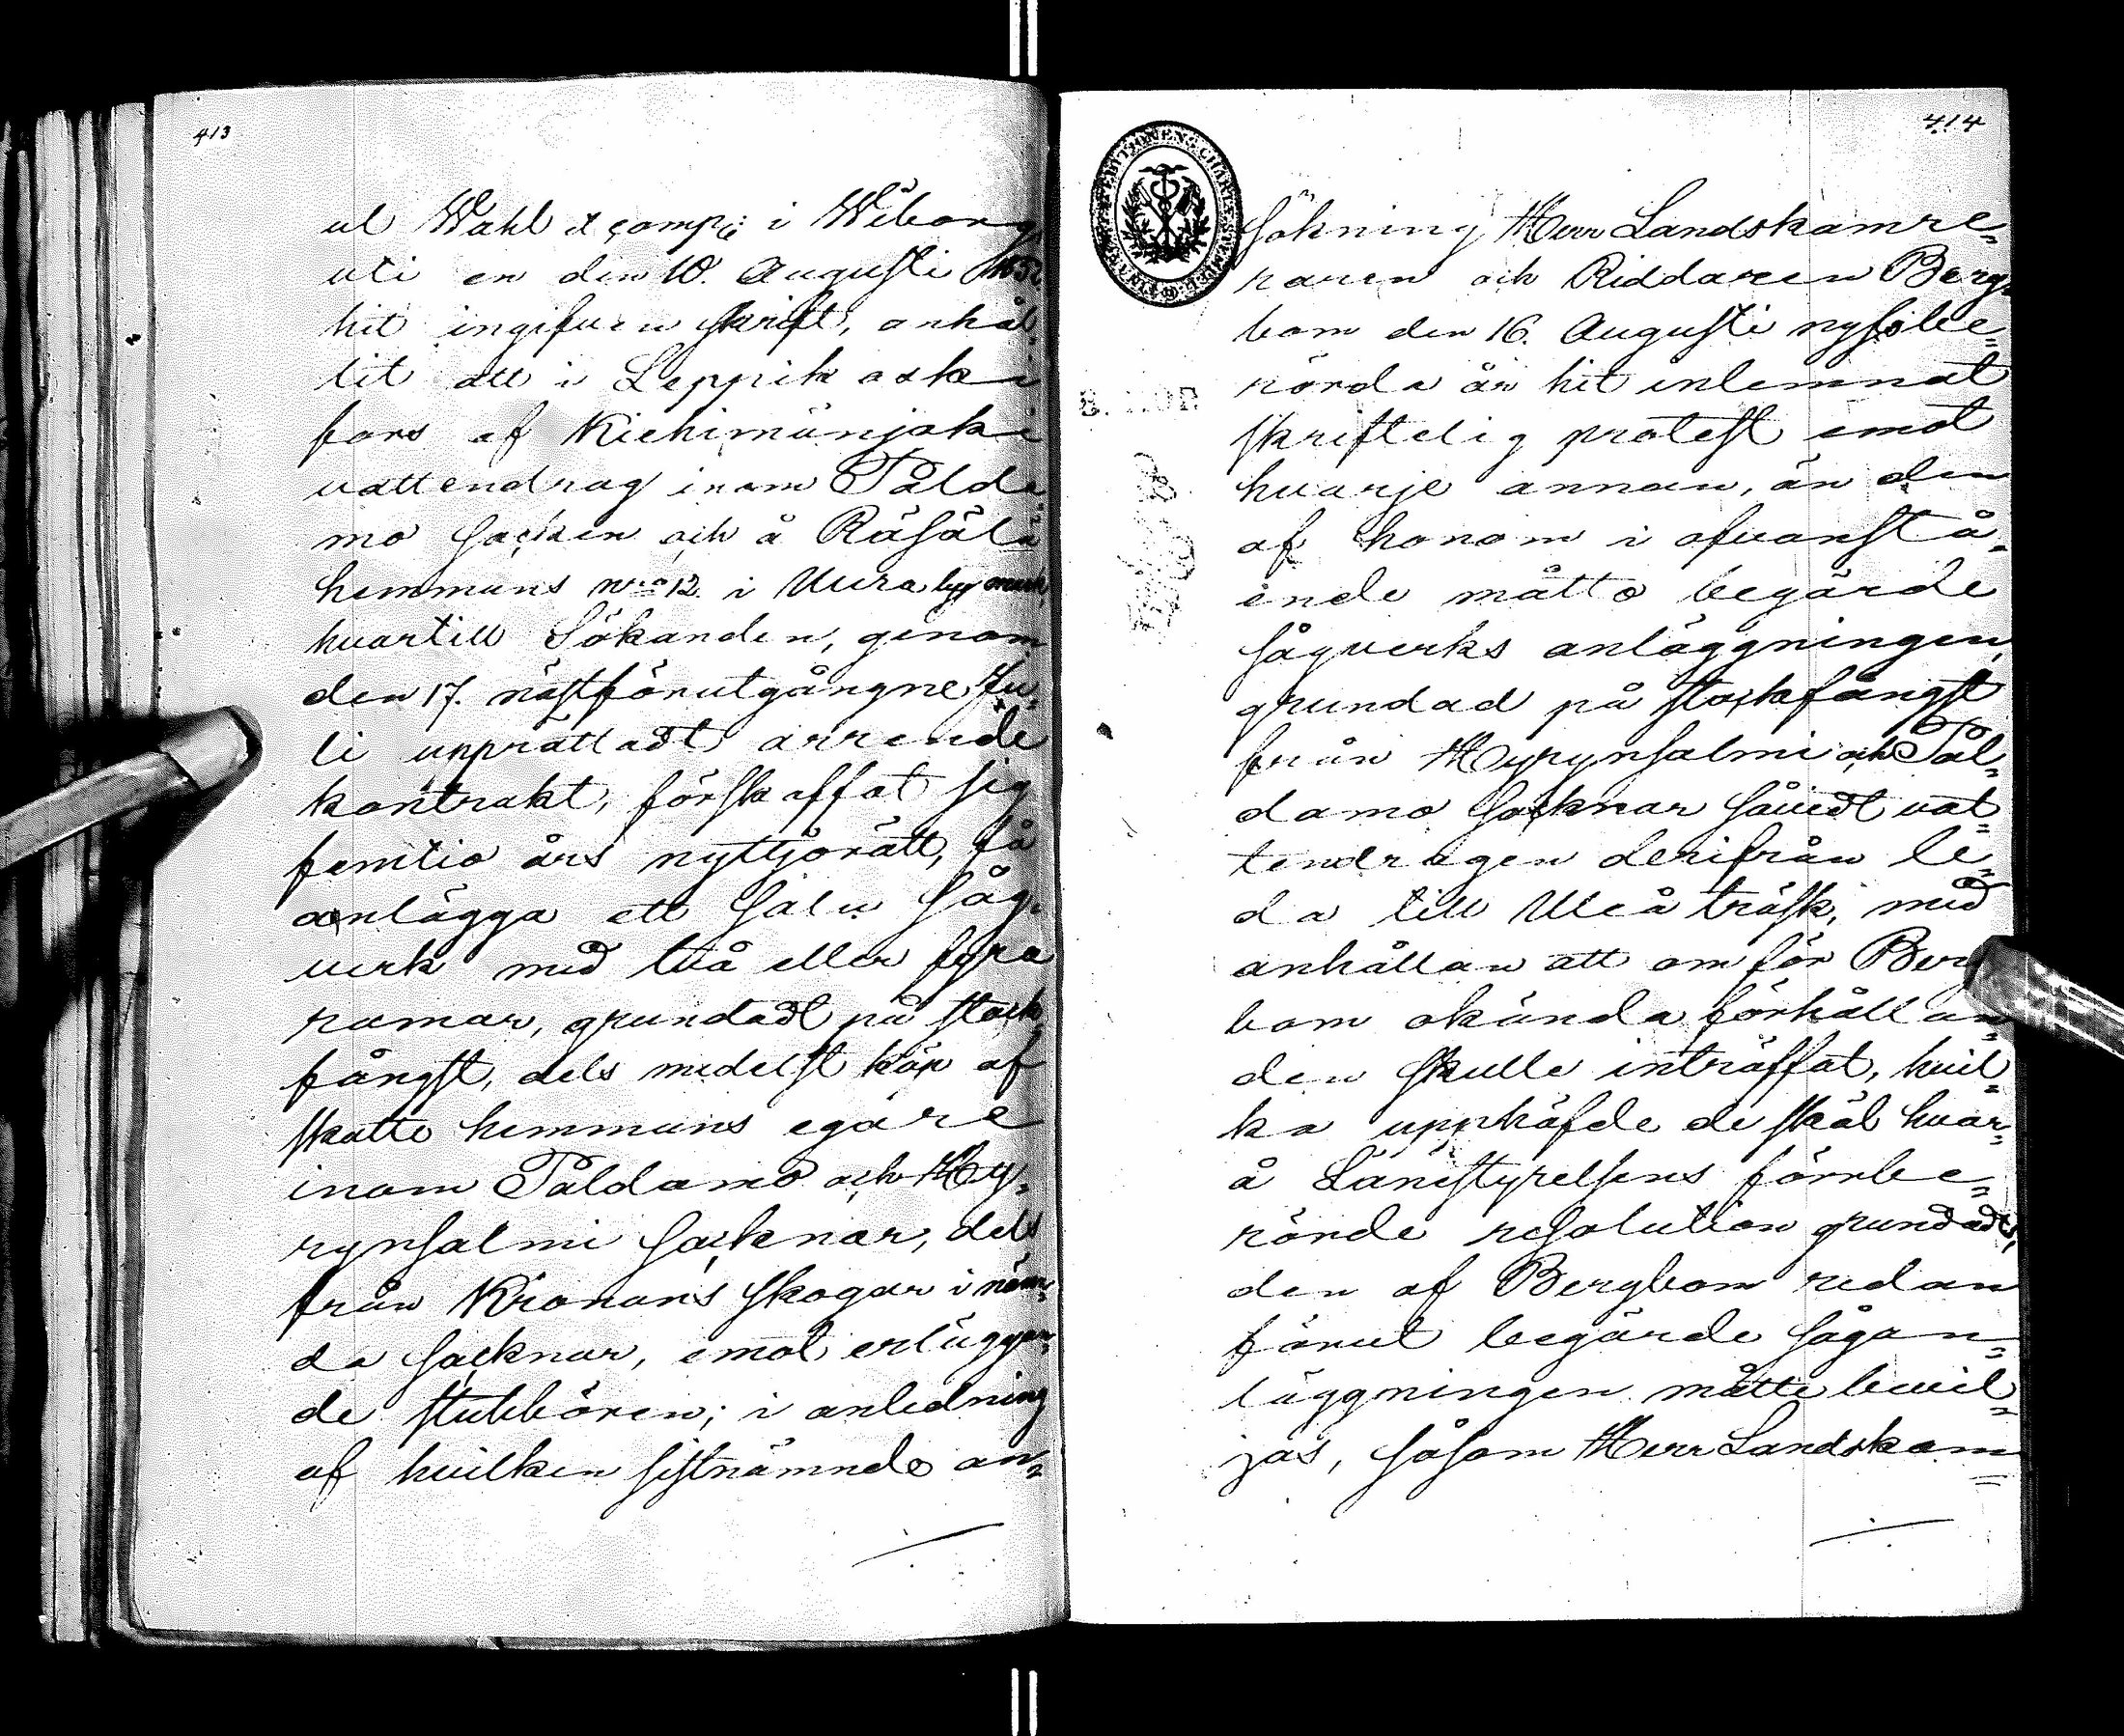 413
ul Wahl & compi: i Wiborg,
uti en den 10. Augusti 1852
hit ingifven skrift, anhål-
lit att i Leppikoski
fors af Kiehimänjoki
vattendrag inom Paldа-
mo socken och å Räsälä
hemmans nro 12. i Uura by mark,
hvartill Sökanden, genom
den 17. nästförutgångne Ju-
li upprättadt arrende
kontrakt, förskaffat sig
femtio års nyttjorätt, få
anlägga ett salu såg-
verk med två eller fyra
ramar, grundadt på stock-
fångst, dels medelst köp af
skatte hemmans egare
inom Paldamo och Hy-
rynsalmi socknar, dels
från Kronans skogar i näm-
da socknar, emot erläggan-
de stubbören; i anledning
af hvilken sistnämnde an-
414
sökning Herr Landskamre-
raren och Riddaren Berg-
bom den 16. Augusti nysbe-
rörda år hit inlemnat
skriftelig protest emot
hvarje annan, än den
af honom i ofvanstå-
ende måtto begärde
sågverks anläggningen,
grundad på stockfångst
från Hyrynsalmi och Pal-
damo socknar såvidt vat-
tendragen derifrån le-
da till Uleå träsk, med
anhållan att om för Berg
bom okända förhållan-
den skulle inträffat, hvil-
ka upphäfde de skäl hvar-
å Länestyrelsens förrbe-
rörde resolution grundadts,
den af Bergbom redan
förut begärde sågan-
läggningen måtte bevil-
jas, såsom Herr Landskam-